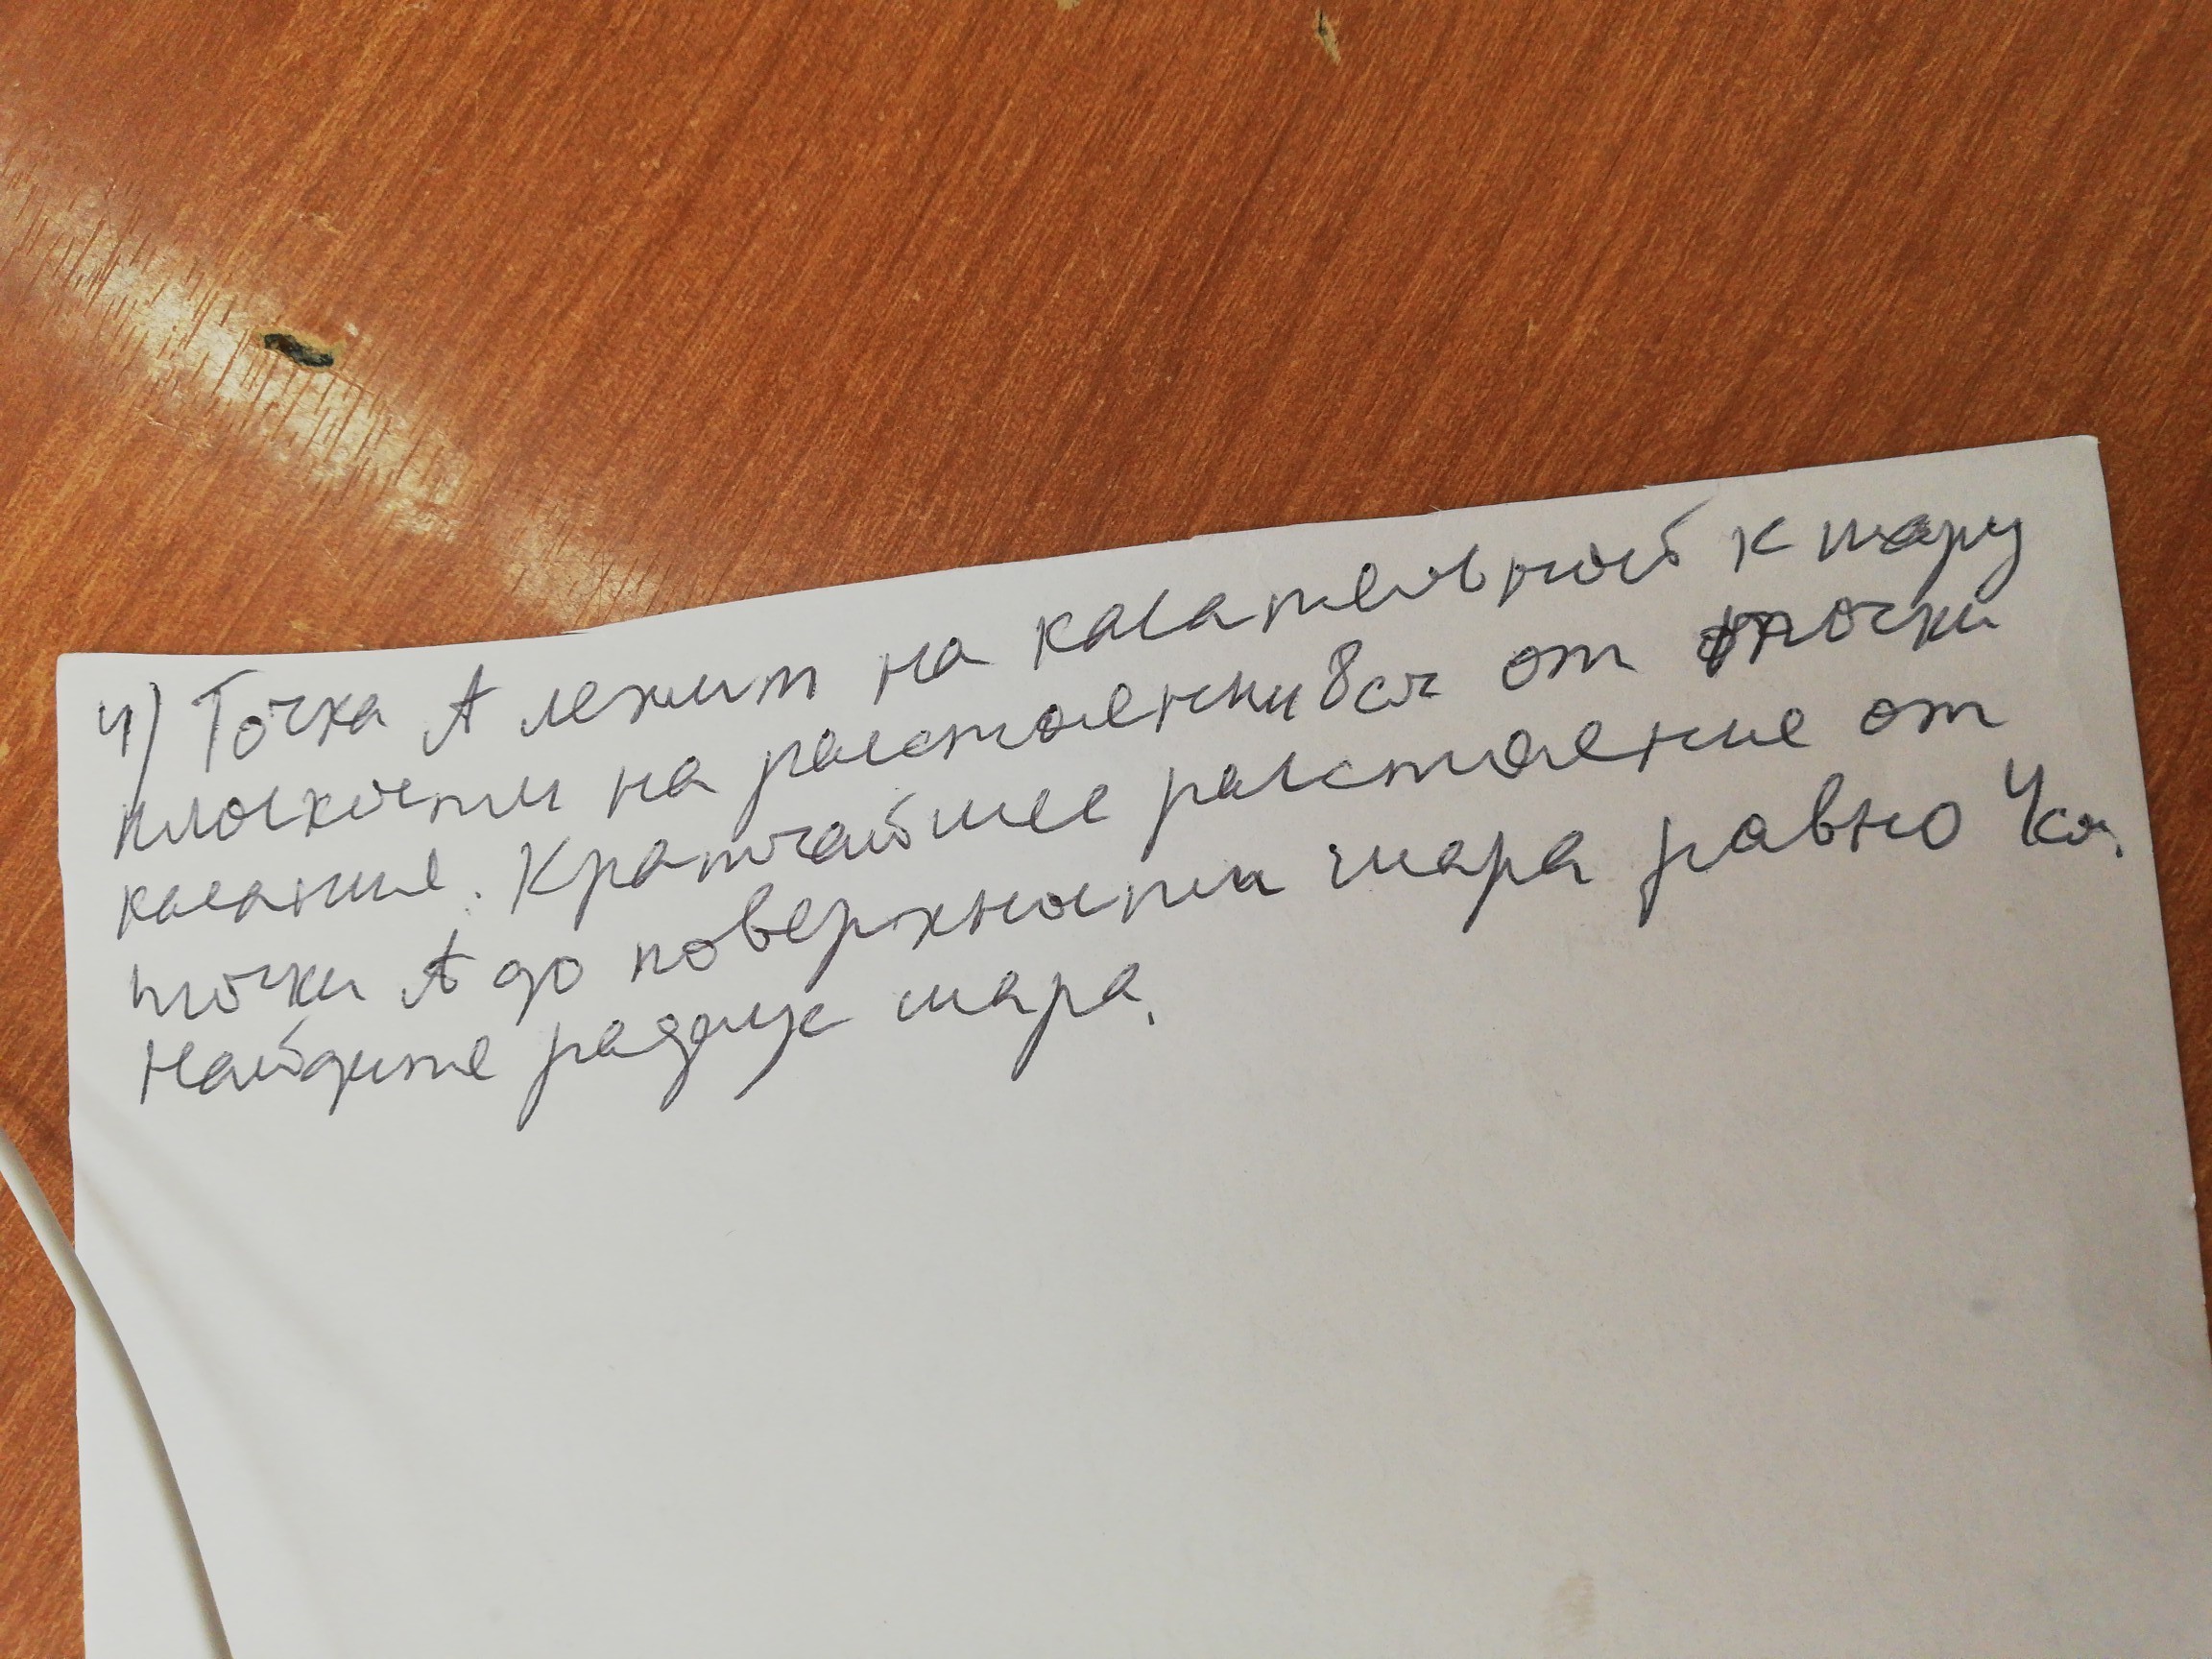 4) Точка А лежит на касательной к шару
плоскости на расстоянии 8см от точки
касание. Кратчайшее расстояние от
точки А до поверхности шара равно 4см.
Найдите радиус шара.